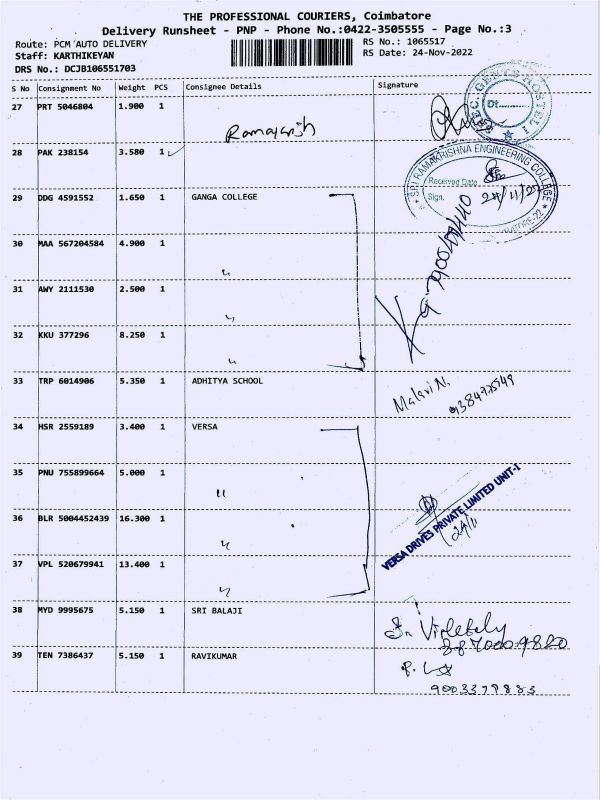 THE PROFESSIONAL COURIERS, Coimbatore
Delivery Runsheet - PNP - Phone No.:0422-3505555 - Page No.:3
Route: PCM AUTO DELIVERY
RS No.: 1065517
Staff: KARTHIKEYAN
RS Date: 24-Nov-2022
DRS No.: DCJB106551703
S No Consignment No Weight PCS Consignee Details Signature
27 PRT 5046804 1.900 1
28 PAK 238154 3.580 1 ✓
SRI RAMAKRISHNA ENGINEERING COLLEGE
Received Date
Sign.
29 DDG 4591552 1.650 1 GANGA COLLEGE
30 MAA 567204584 4.900 1 "
31 AWY 2111530 2.500 1 "
32 KKU 377296 8.250 1 "
33 TRP 6014906 5.350 1 ADHITYA SCHOOL
Malavi N.
34 HSR 2559189 3.400 1 VERSA
35 PNU 755899664 5.000 1 "
VERSA DRIVES PRIVATE LIMITED UNIT-1
24/11
36 BLR 5004452439 16.300 1 "
37 VPL 520679941 13.400 1 "
38 MYD 9995675 5.150 1 SRI BALAJI
39 TEN 7386437 5.150 1 RAVIKUMAR